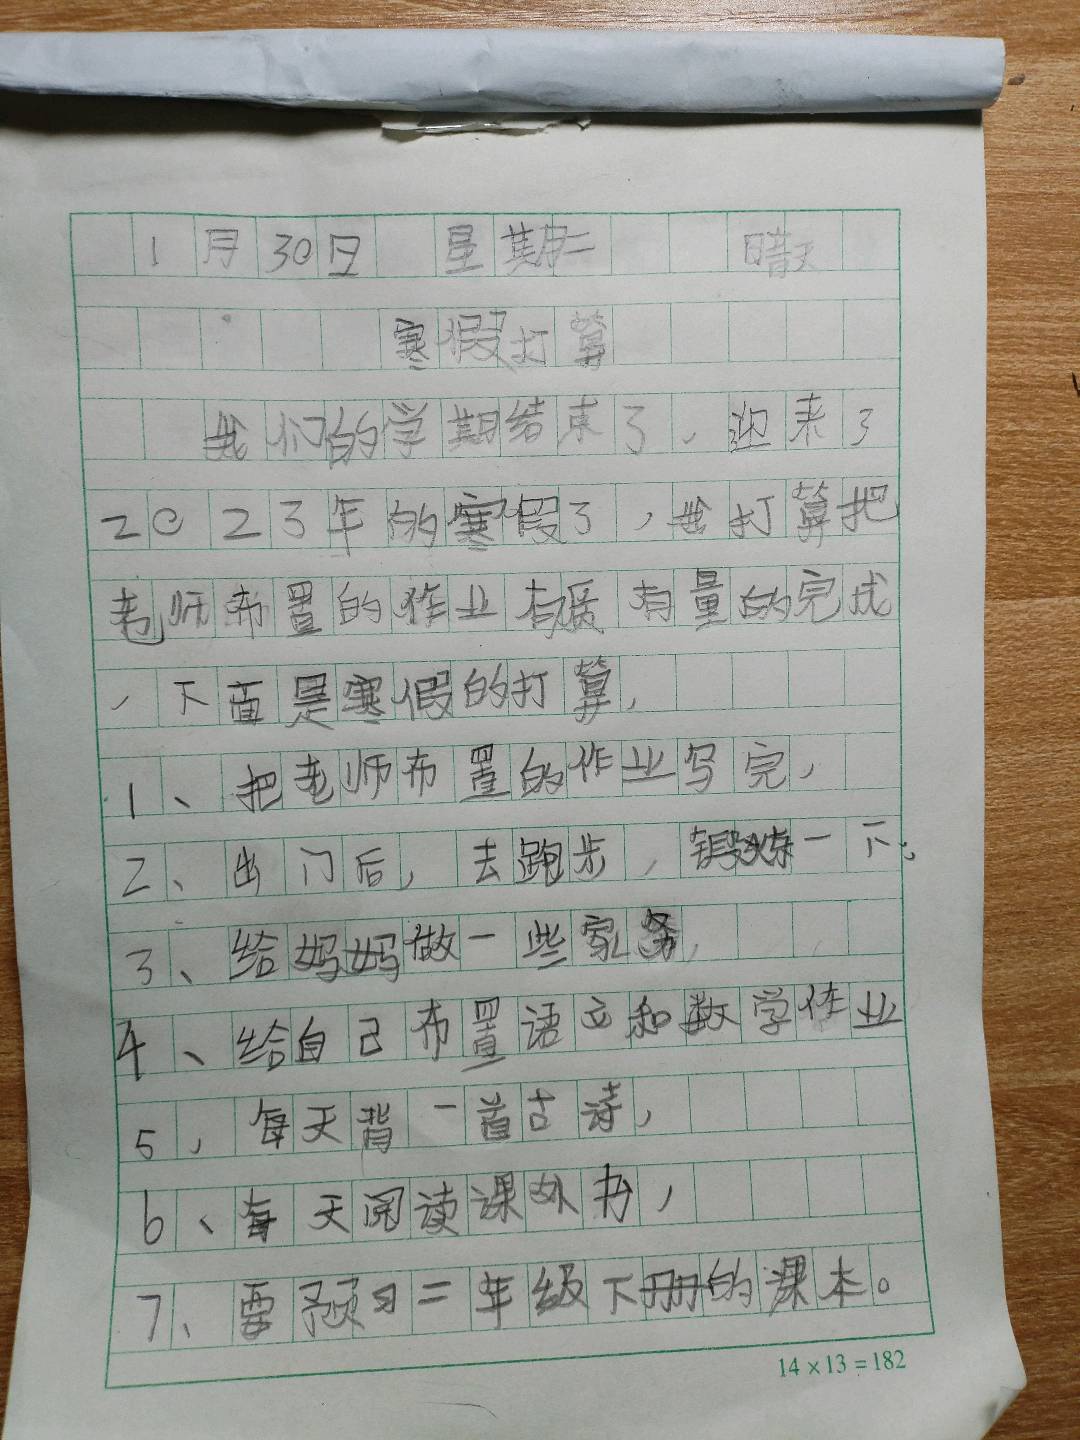 1月30日 星期二 晴天
寒假打算
我们的学期结束了，迎来了
2023年的寒假了，我打算把
老师布置的作业有质有量的完成
，下面是寒假的打算，
1、把老师布置的作业写完，
2、出门后，去跑步，锻炼一下，
3、给妈妈做一些家务，
4、给自己布置语文和数学作业
5，每天背一首古诗，
6、每天阅读课外书，
7、要预习二年级下册的课本。
14×13=182